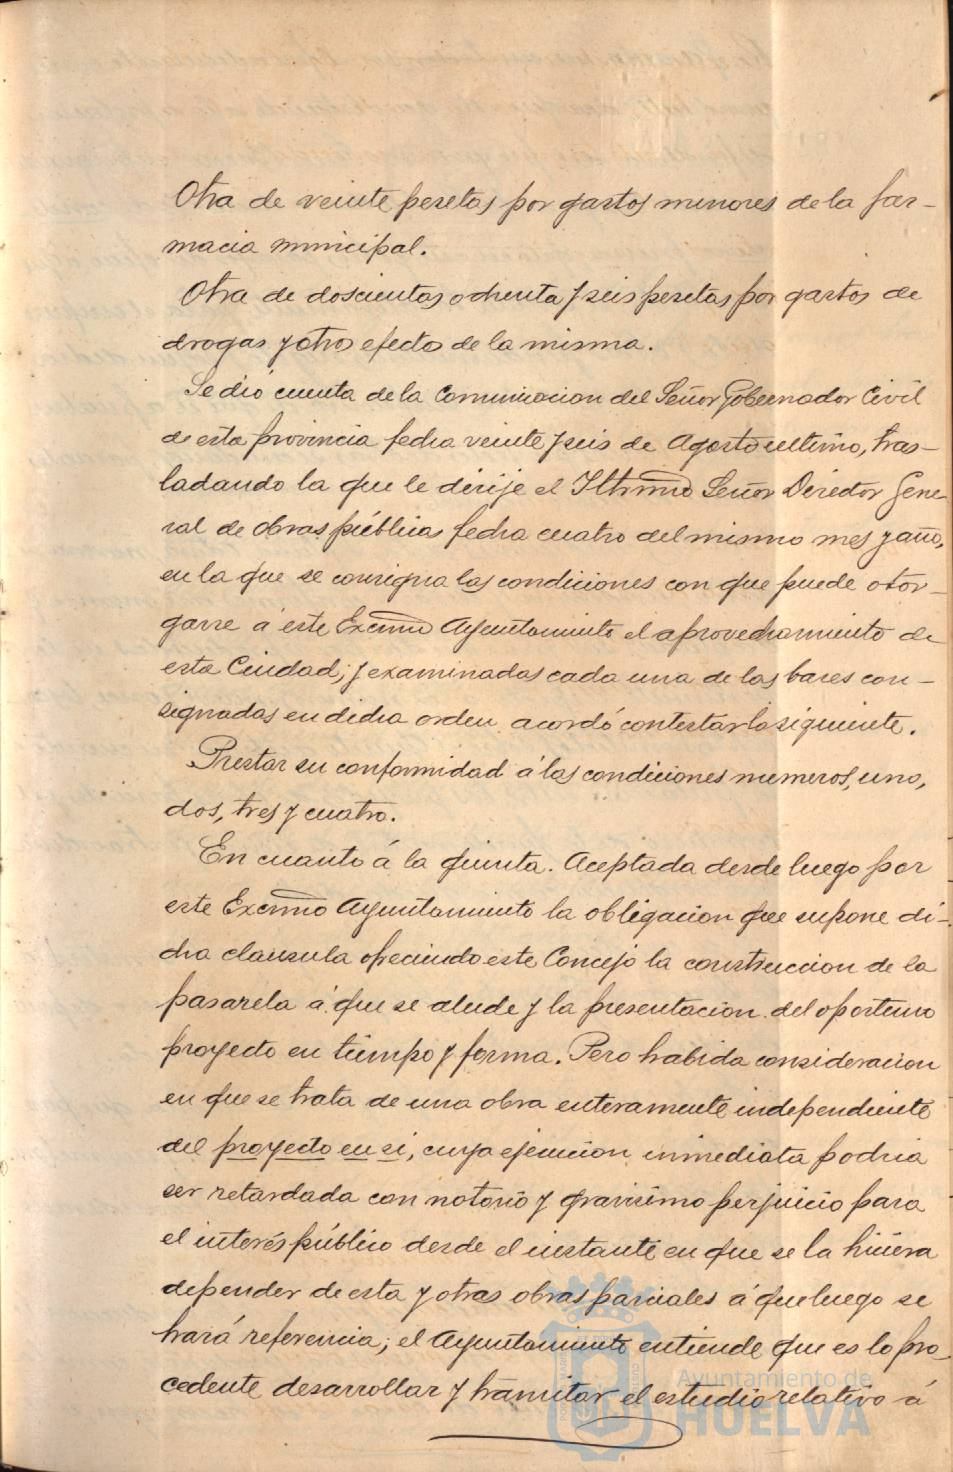 Otra de veinte pesetas por gastos menores de la far-
macia municipal.
Otra de doscientas ochenta y seis pesetas por gastos de
drogas y otros efectos de la misma.
Se dió cuenta de la Comunicacion del Señor Gobernador Civil
de esta provincia fecha veinte y seis de Agosto último, tras-
ladando la que le dirije el Iltrmo Señor Director Gene-
ral de obras públicas fecha cuatro del mismo mes y año,
en la que se consigna las condiciones con que puede otor-
garse á este Excmo Ayuntamiento el aprovechamiento de
esta Ciudad; y examinadas cada una de las bases con-
signadas en dicha orden acordó contestar lo siguiente.
Prestar su conformidad á las condiciones numeros, uno,
dos, tres y cuatro.
En cuanto á la quinta. Aceptada desde luego por
este Excmo Ayuntamiento la obligacion que supone di-
cha clausula ofreciendo este Concejo la construccion de la
pasarela á que se alude y la presentacion del oportuno
proyecto en tiempo y forma. Pero habida consideracion
en que se trata de una obra enteramente independiente
del proyecto en si, cuya ejecucion inmediata podria
ser retardada con notorio y gravisimo perjuicio para
el interés público desde el instante en que se la hiciera
depender de esta y otras obras parciales á que luego se
hará referencia; el Ayuntamiento entiende que es lo pro-
cedente desarrollar y tramitar el estudio relativo á
Ayuntamiento de
HUELVA